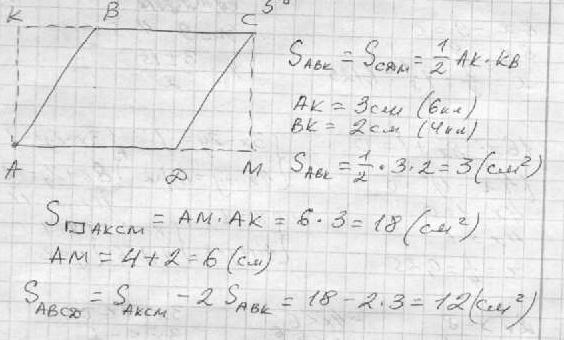 K B C 5
A D M
S_ABK = S_CDM = 1/2 AK · KB
AK = 3см (6кл)
BK = 2см (4кл)
S_ABK = 1/2 · 3 · 2 = 3 (см²)
S▭AKCM = AM · AK = 6 · 3 = 18 (см²)
AM = 4 + 2 = 6 (см)
S_ABCD = S_AKCM - 2 S_ABK = 18 - 2 · 3 = 12 (см²)